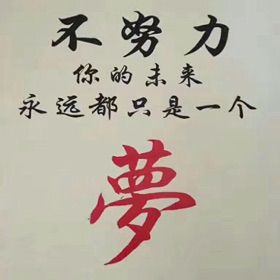 不努力
你的未来
永远都只是一个
夢